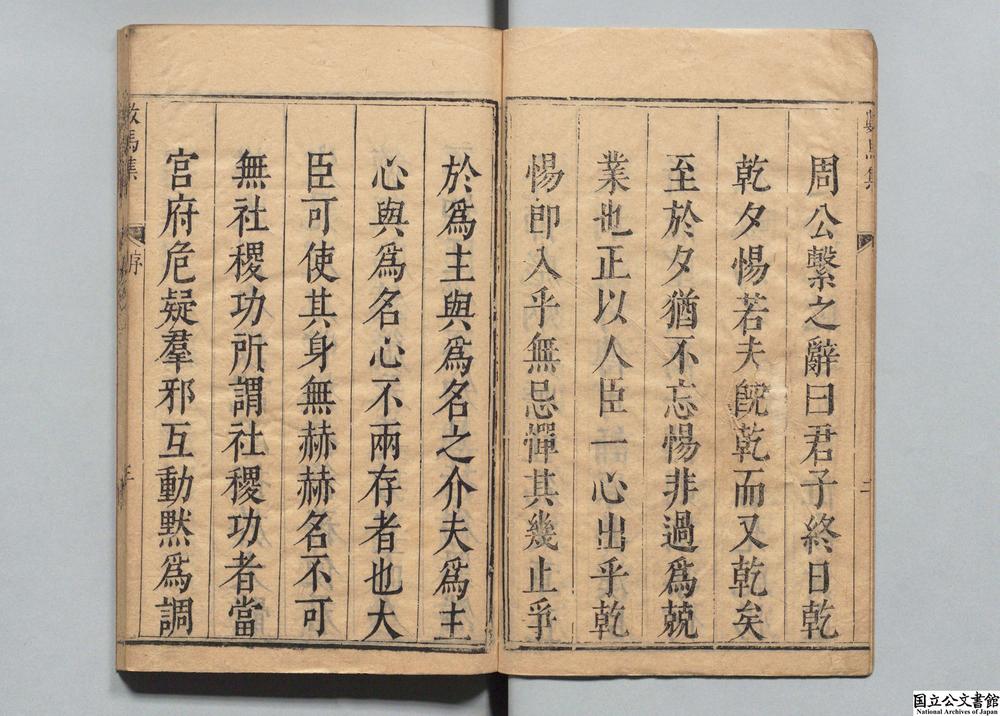 周公繫之辭曰君子終日乾
乾夕惕若夫旣乾而又乾矣
至於夕猶不忘惕非過爲兢
業也正以人臣一心出乎乾
惕即入乎無忌憚其幾止爭
於爲主與爲名之介夫爲主
心與爲名心不兩存者也大
臣可使其身無赫赫名不可
無社稷功所謂社稷功者當
宮府危疑羣邪互動默爲調
序
国立公文書館
National Archives of Japan